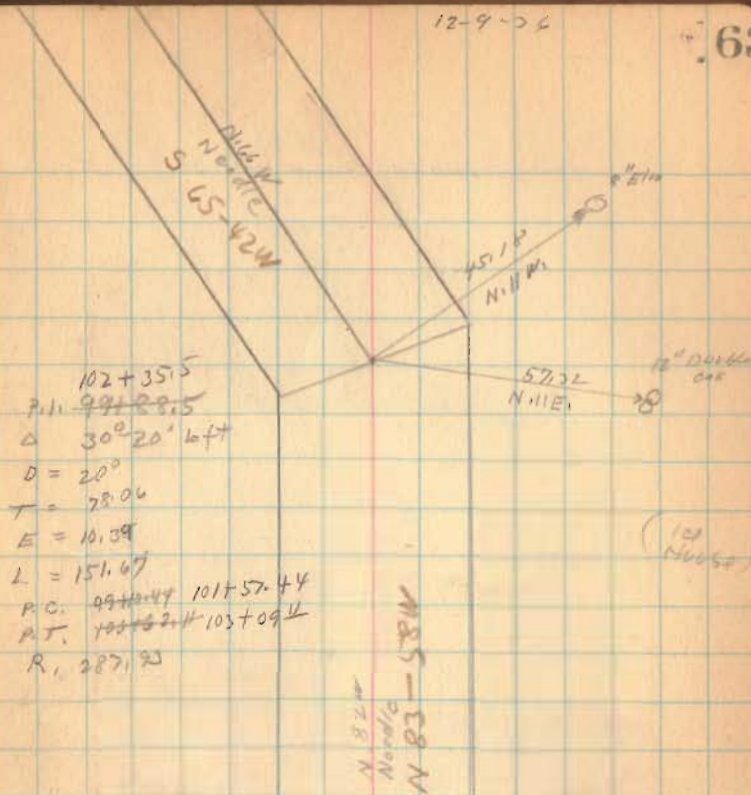 12-9-36
63
N.66W
Needle
S 65-42W
8" Elm
45.18
N.11W.
57.32
N.11E.
12" Double
oak
102+35.5
P.I. 99+88.5
Δ 30°-20' left
D = 20°
T = 78.06
E = 10.39
L = 151.67
P.C. 99+10.44 101+57.44
P.T. 103+09.11
R. 287.93
N 82W
Needle
N 83-58W